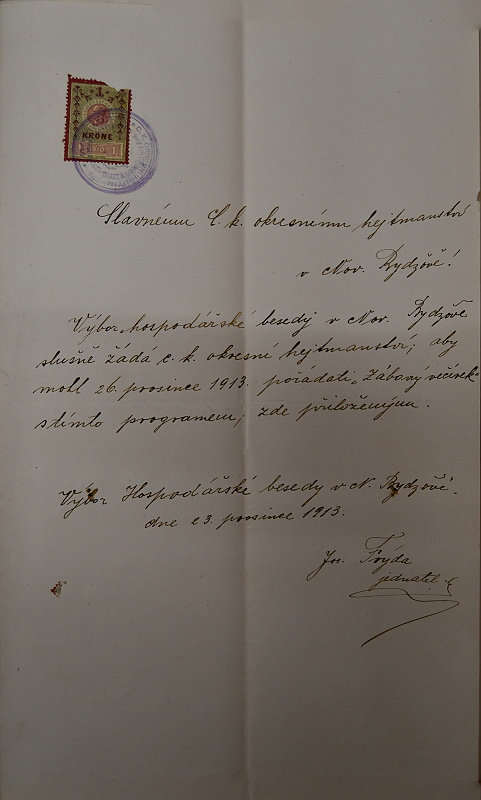 1
KRONE
1910
Slavnému C. k. okresnímu hejtmanství
v Nov. Bydžově!
Výbor „hospodářské besedy v Nov. Bydžově
slušně žádá c. k. okresní hejtmanství; aby
mohl 26. prosince 1913. pořádati „Zábavý večírek“
stímto programem; zde přiloženým.
Výbor Hospodářské besedy v N. Bydžově.
dne 23. prosince 1913.
Jos. Frýda
jednatel.